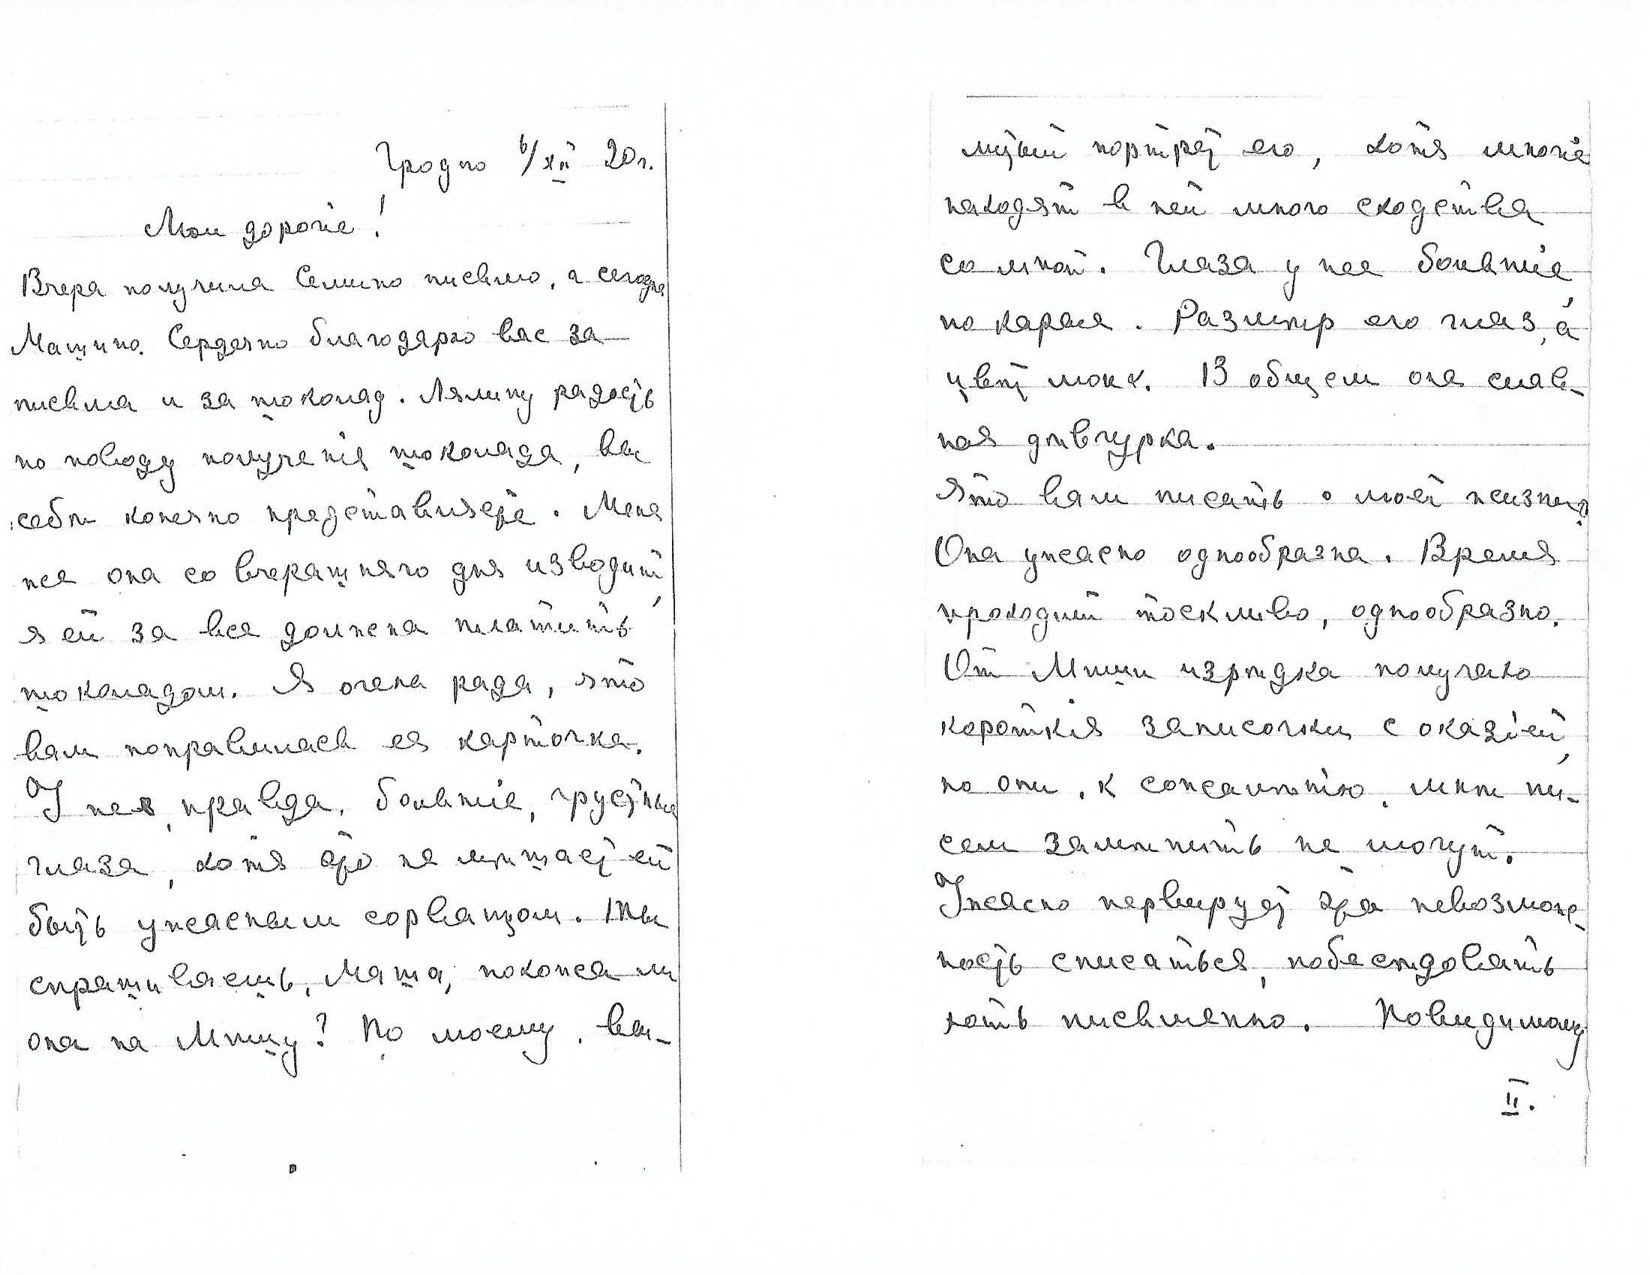 Гродно 6/XII 20 г.
Мои дорогіе!
Вчера получила Семино письмо, а сегодня
Машино. Сердечно благодарю вас за
письма и за шоколад. Лялину радость
по поводу полученія шоколада, вы
себѣ конечно представляете. Меня
же она со вчерашняго дня изводит,
я ей за все должна платить
шоколадом. Я очень рада, что
вам понравилась ея карточка.
У нея, правда, большіе, грустные
глаза, хотя это не мѣшает ей
быть ужасным сорванцом. Ты
спрашиваешь, Маша, похожа ли
она на Мишу? По моему, вы-
литый портрет его, хотя многіе
находят в ней много сходства
со мной. Глаза у нее большіе
но карая. Размѣр его глаз, а
цвѣт моих. В общем она слав-
ная дѣвчурка.
Что вам писать о моей жизни?
Она ужасно однообразна. Время
проходит тоскливо, однообразно.
От Миши изрѣдка получаю
короткія записочки с оказіей,
но они, к сожалѣнію, мнѣ пи-
сем замѣнить не могут.
Ужасно нервирует эта невозмож-
ность списаться, побесѣдовать
хоть письменно. Повидимому
II.